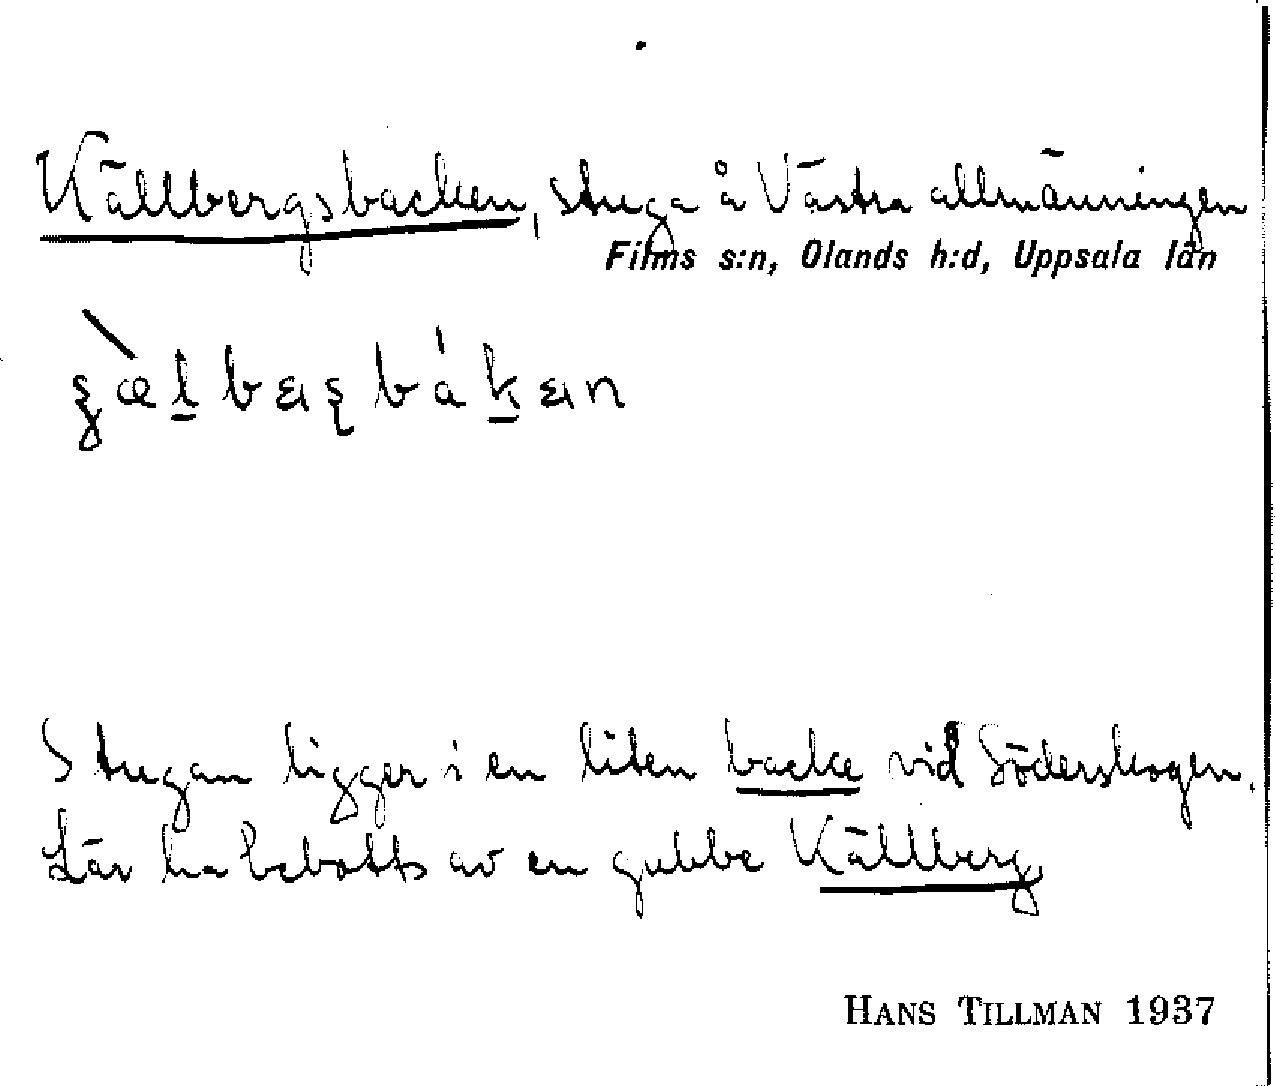 Källbergsbacken, stuga å Västra allmänningen
Films s:n, Olands h:d, Uppsala län
Stugan ligger i en liten backe vid Söderskogen.
Lär ha bebotts av en gubbe Källberg
HANS TILLMAN 1937